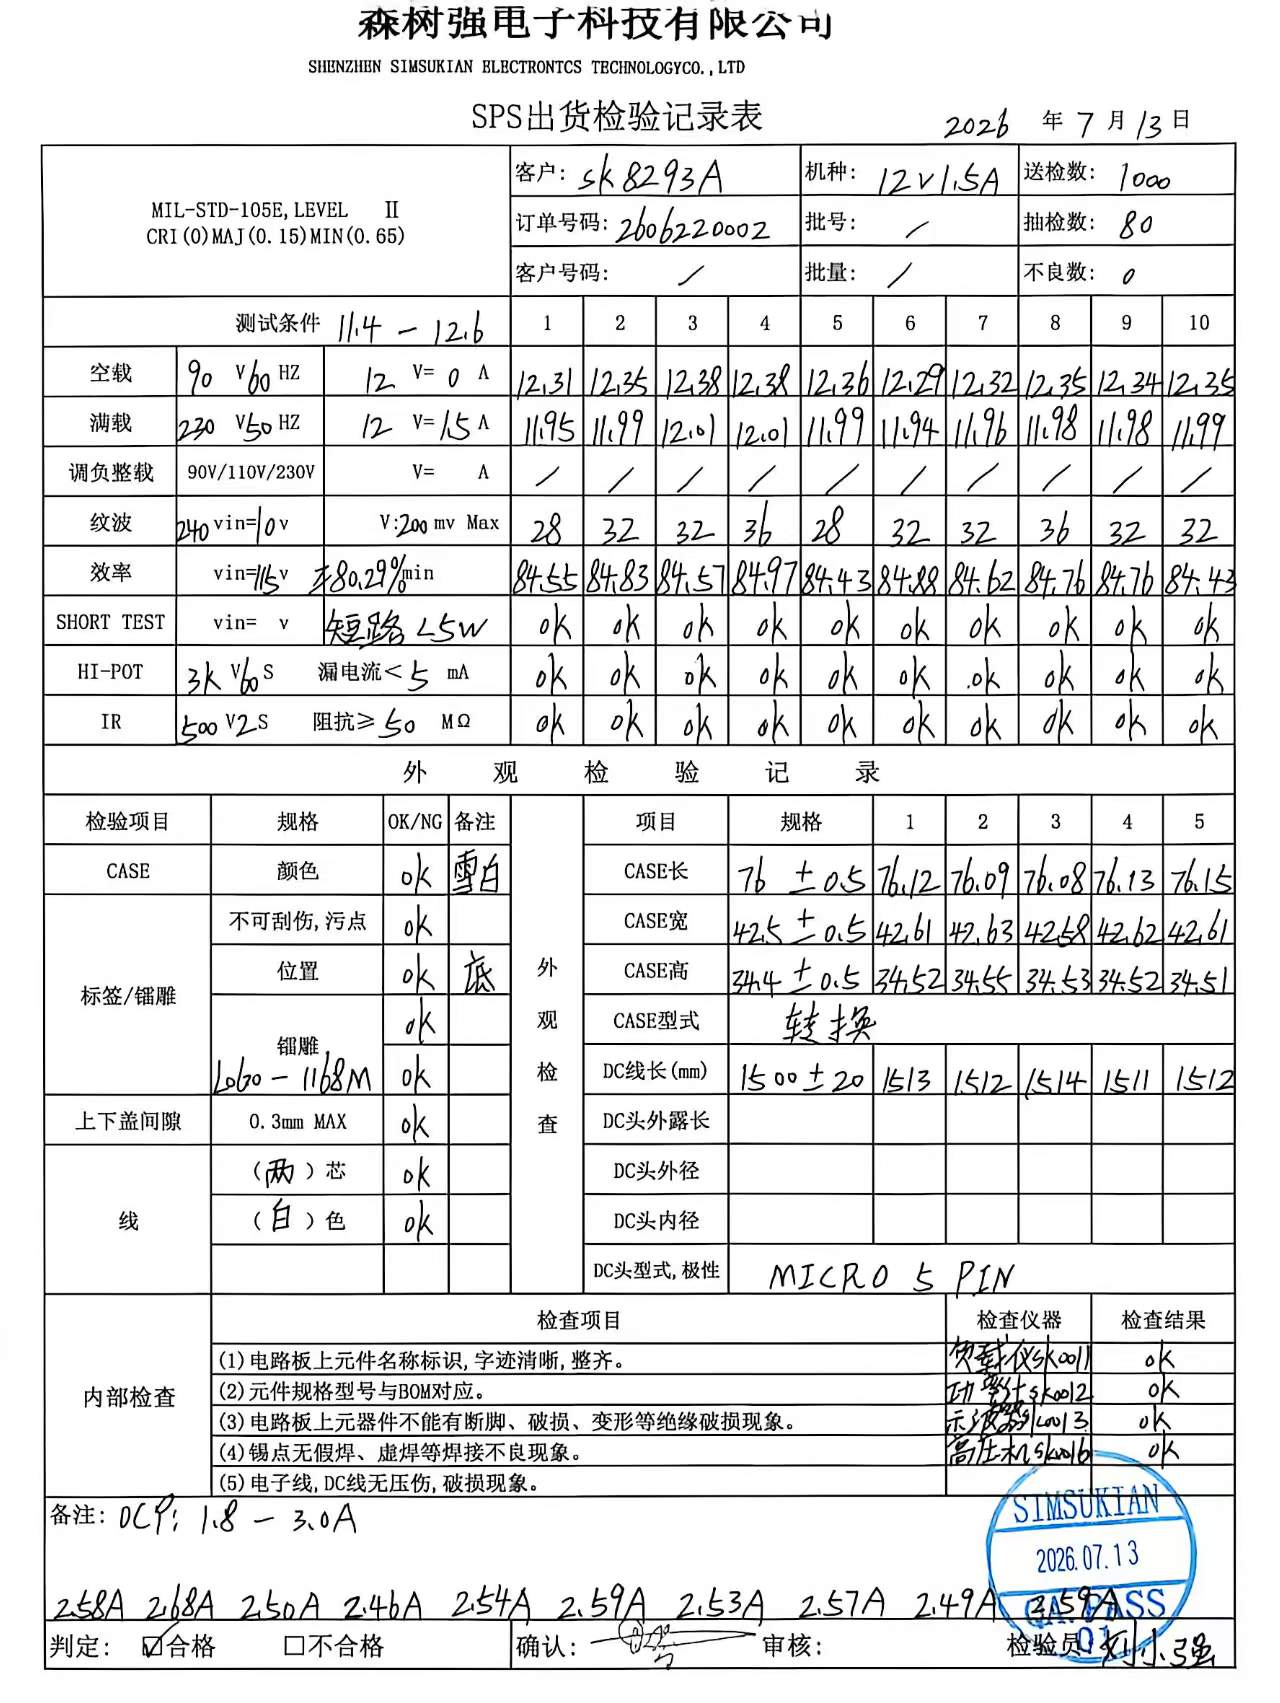 森树强电子科技有限公司
SHENZHEN SIMSUKIAN ELECTRONTCS TECHNOLOGYCO.,LTD
SPS出货检验记录表 2026 年 7 月 13 日
MIL-STD-105E,LEVEL Ⅱ
CRI(0)MAJ(0.15)MIN(0.65)
客户: sk8293A 机种: 12V1.5A 送检数: 1000
订单号码: 2606220002 批号: / 抽检数: 80
客户号码: / 批量: / 不良数: 0
测试条件 11.4 - 12.6 1 2 3 4 5 6 7 8 9 10
空载 90 V 60 HZ 12 V= 0 A 12.31 12.35 12.38 12.38 12.36 12.29 12.32 12.35 12.34 12.35
满载 230 V 50 HZ 12 V= 1.5 A 11.95 11.99 12.01 12.01 11.99 11.94 11.96 11.98 11.98 11.99
调负整载 90V/110V/230V V= A / / / / / / / / / /
纹波 240 vin= 10 v V: 200 mv Max 28 32 32 36 28 32 32 36 32 32
效率 vin= 115 v 80.29% min 84.55 84.83 84.57 84.97 84.43 84.88 84.62 84.76 84.76 84.43
SHORT TEST vin= v 短路 <5W ok ok ok ok ok ok ok ok ok ok
HI-POT 3K V 60 S 漏电流< 5 mA ok ok ok ok ok ok ok ok ok ok
IR 500 V 2 S 阻抗≥ 50 MΩ ok ok ok ok ok ok ok ok ok ok
外观检验记录
检验项目 规格 OK/NG 备注 外观检查 项目 规格 1 2 3 4 5
CASE 颜色 ok 雪白 CASE长 76 ±0.5 76.12 76.09 76.08 76.13 76.15
标签/镭雕 不可刮伤,污点 ok CASE宽 42.5 ±0.5 42.61 42.63 42.58 42.62 42.61
位置 ok 底 CASE高 34.4 ±0.5 34.52 34.55 34.53 34.52 34.51
镭雕 ok CASE型式 转换
LOGO - 1168M ok DC线长(mm) 1500±20 1513 1512 1514 1511 1512
上下盖间隙 0.3mm MAX ok DC头外露长
线 (两)芯 ok DC头外径
(白)色 ok DC头内径
DC头型式,极性 MICRO 5 PIN
内部检查 检查项目 检查仪器 检查结果
(1)电路板上元件名称标识,字迹清晰,整齐。 负载仪sk0011 ok
(2)元件规格型号与BOM对应。 功率计sk0012 ok
(3)电路板上元器件不能有断脚、破损、变形等绝缘破损现象。 示波器sk0013 ok
(4)锡点无假焊、虚焊等焊接不良现象。 高压机sk0016 ok
(5)电子线,DC线无压伤,破损现象。
备注: OCP: 1.8 - 3.0A
SIMSUKIAN
2026.07.13
QA PASS
01
2.58A 2.68A 2.50A 2.46A 2.54A 2.59A 2.53A 2.57A 2.49A 2.59A
判定: ☑合格 □不合格 确认: 审核: 检验员: 刘小强